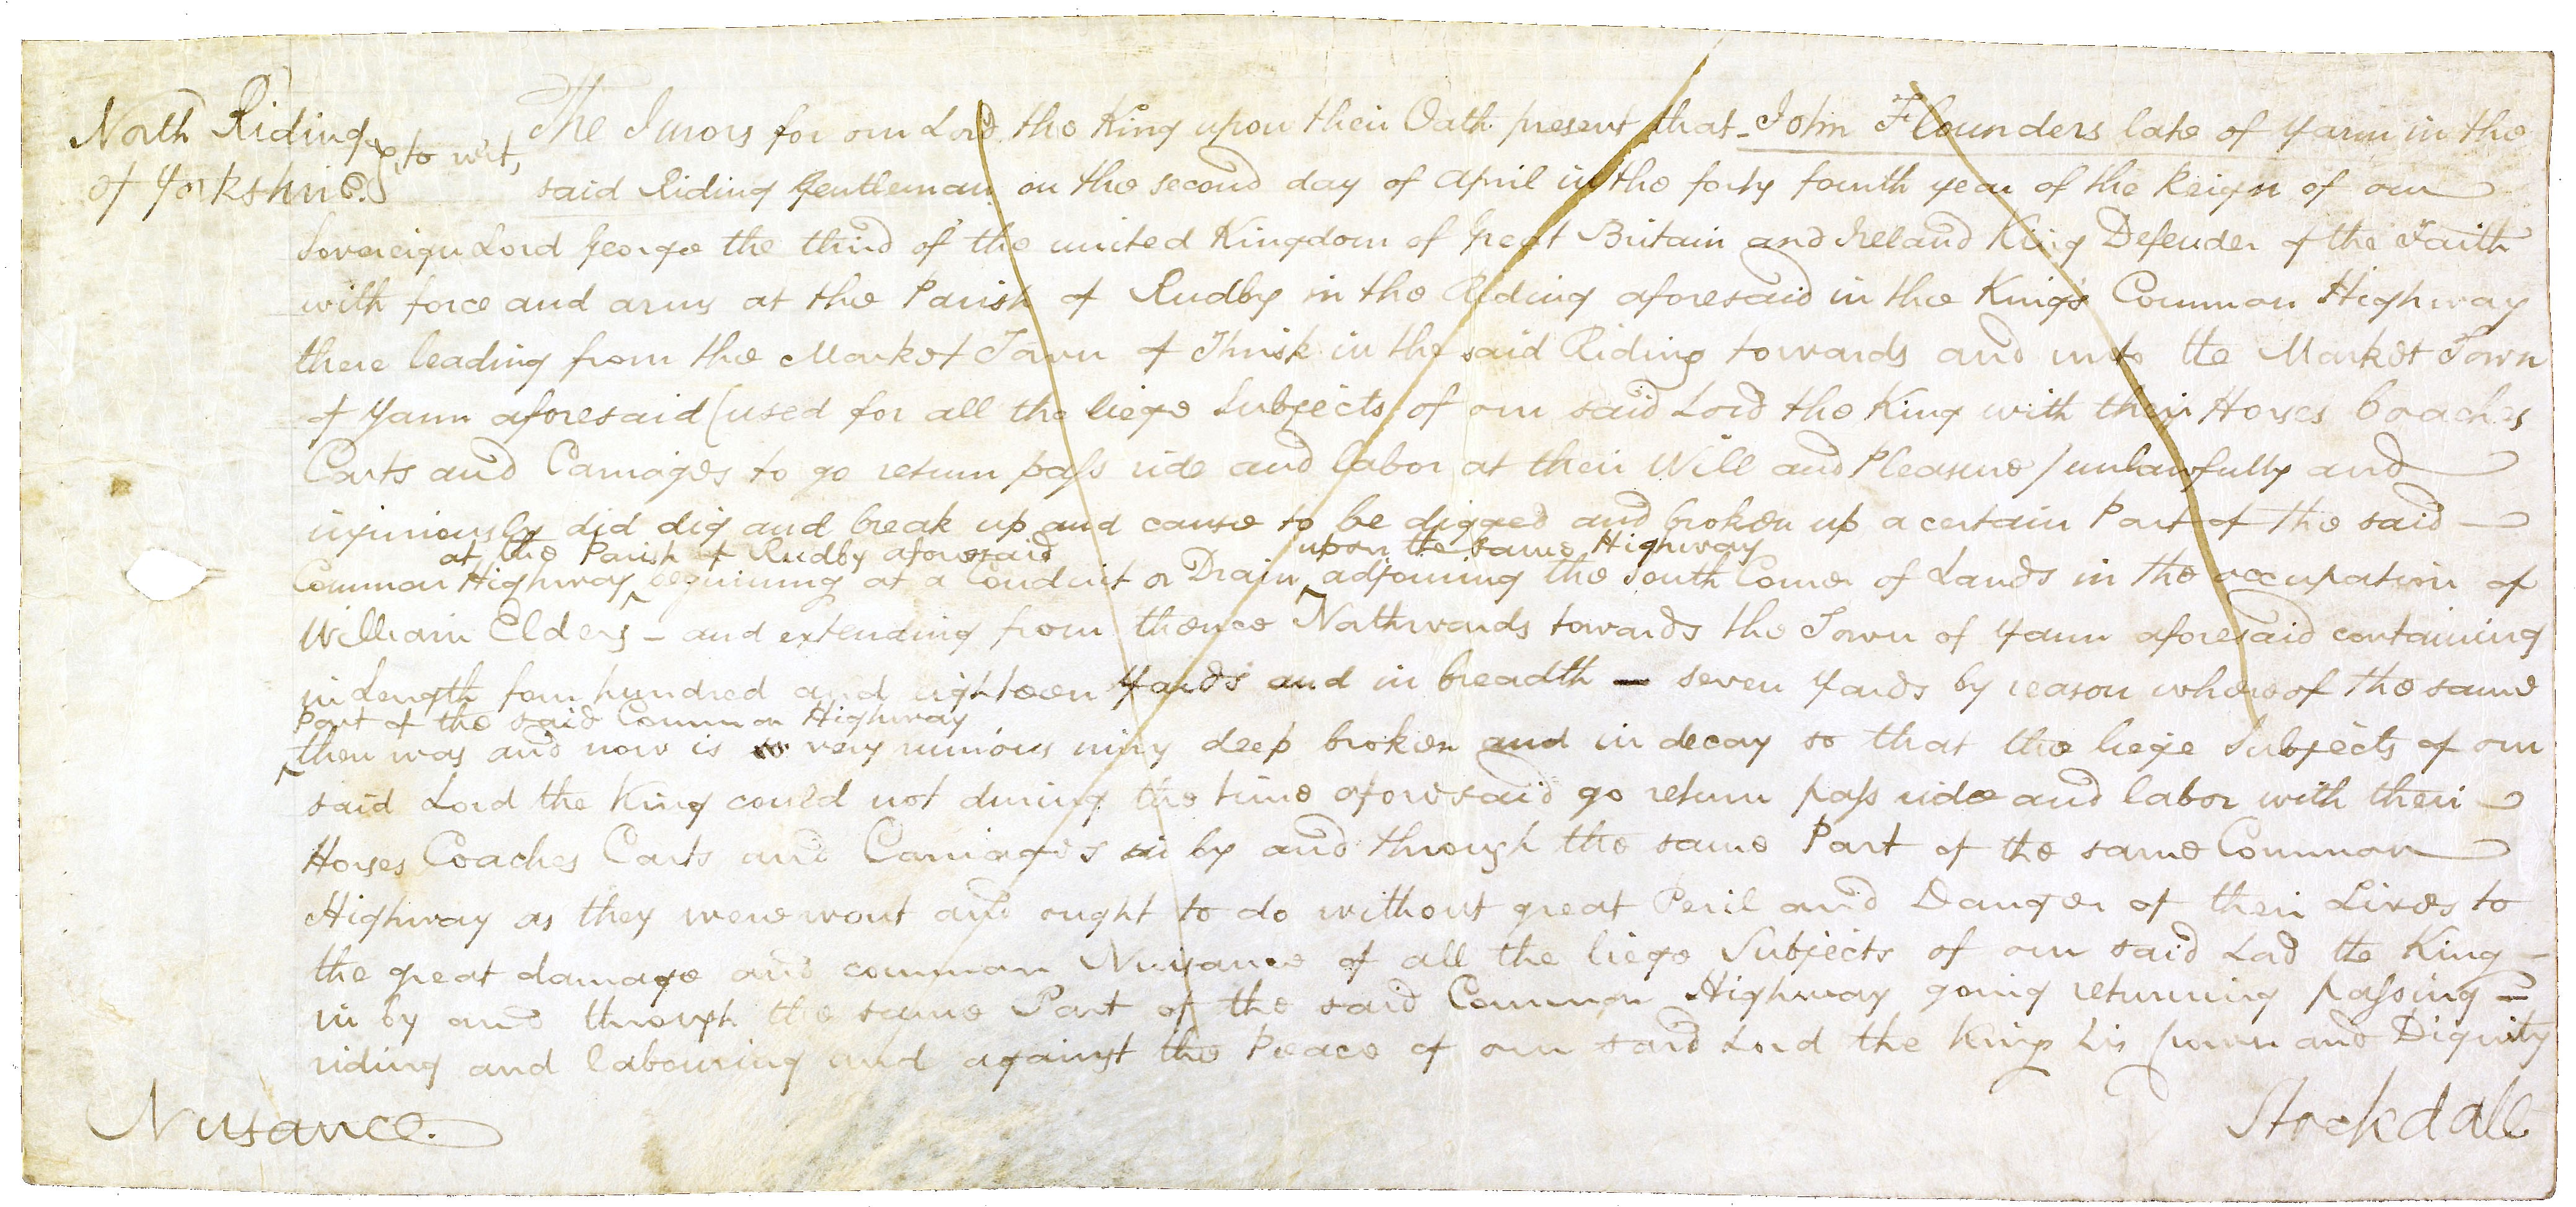 North Riding
of Yorkshire } to wit,
The Jurors for our Lord the King upon their Oath present that John Flounders late of Yarm in the
said Riding Gentleman on the second day of April in the forty fourth year of the Reign of our
Sovereign Lord George the third of the united Kingdom of Great Britain and Ireland King Defender of the Faith
with force and arms at the Parish of Rudby in the Riding aforesaid in the Kings Common Highway
there leading from the Market Town of Thirsk in the said Riding towards and unto the Market Town
of Yarm aforesaid (used for all the liege Subjects of our said Lord the King with their Horses Coaches
Carts and Carriages to go return pass ride and labor at their Will and Pleasure) unlawfully and
injuriously did dig and break up and cause to be digged and broken up a certain Part of the said
at the Parish of Rudby aforesaid upon the same Highway
Common Highway ^ beginning at a Conduit or Drain ^ adjoining the South Corner of Lands in the occupation of
William Elders – and extending from thence Northwards towards the Town of Yarm aforesaid containing
in Length four hundred and eighteen Yards and in breadth – seven Yards by reason whereof the same
Part of the said Common Highway
^ then was and now is very ruinous miry deep broken and in decay so that the liege Subjects of our
said Lord the King could not during the time aforesaid go return pass ride and labor with their
Horses Coaches Carts and Carriages in by and through the same Part of the same Common
Highway as they were wont and ought to do without great Peril and Danger of their Lives to
the great damage and common Nuisance of all the liege Subjects of our said Lord the King –
in by and through the same Part of the said Common Highway going returning passing =
riding and labouring and against the Peace of our said Lord the King his Crown and Dignity
Nusance. Stockdale